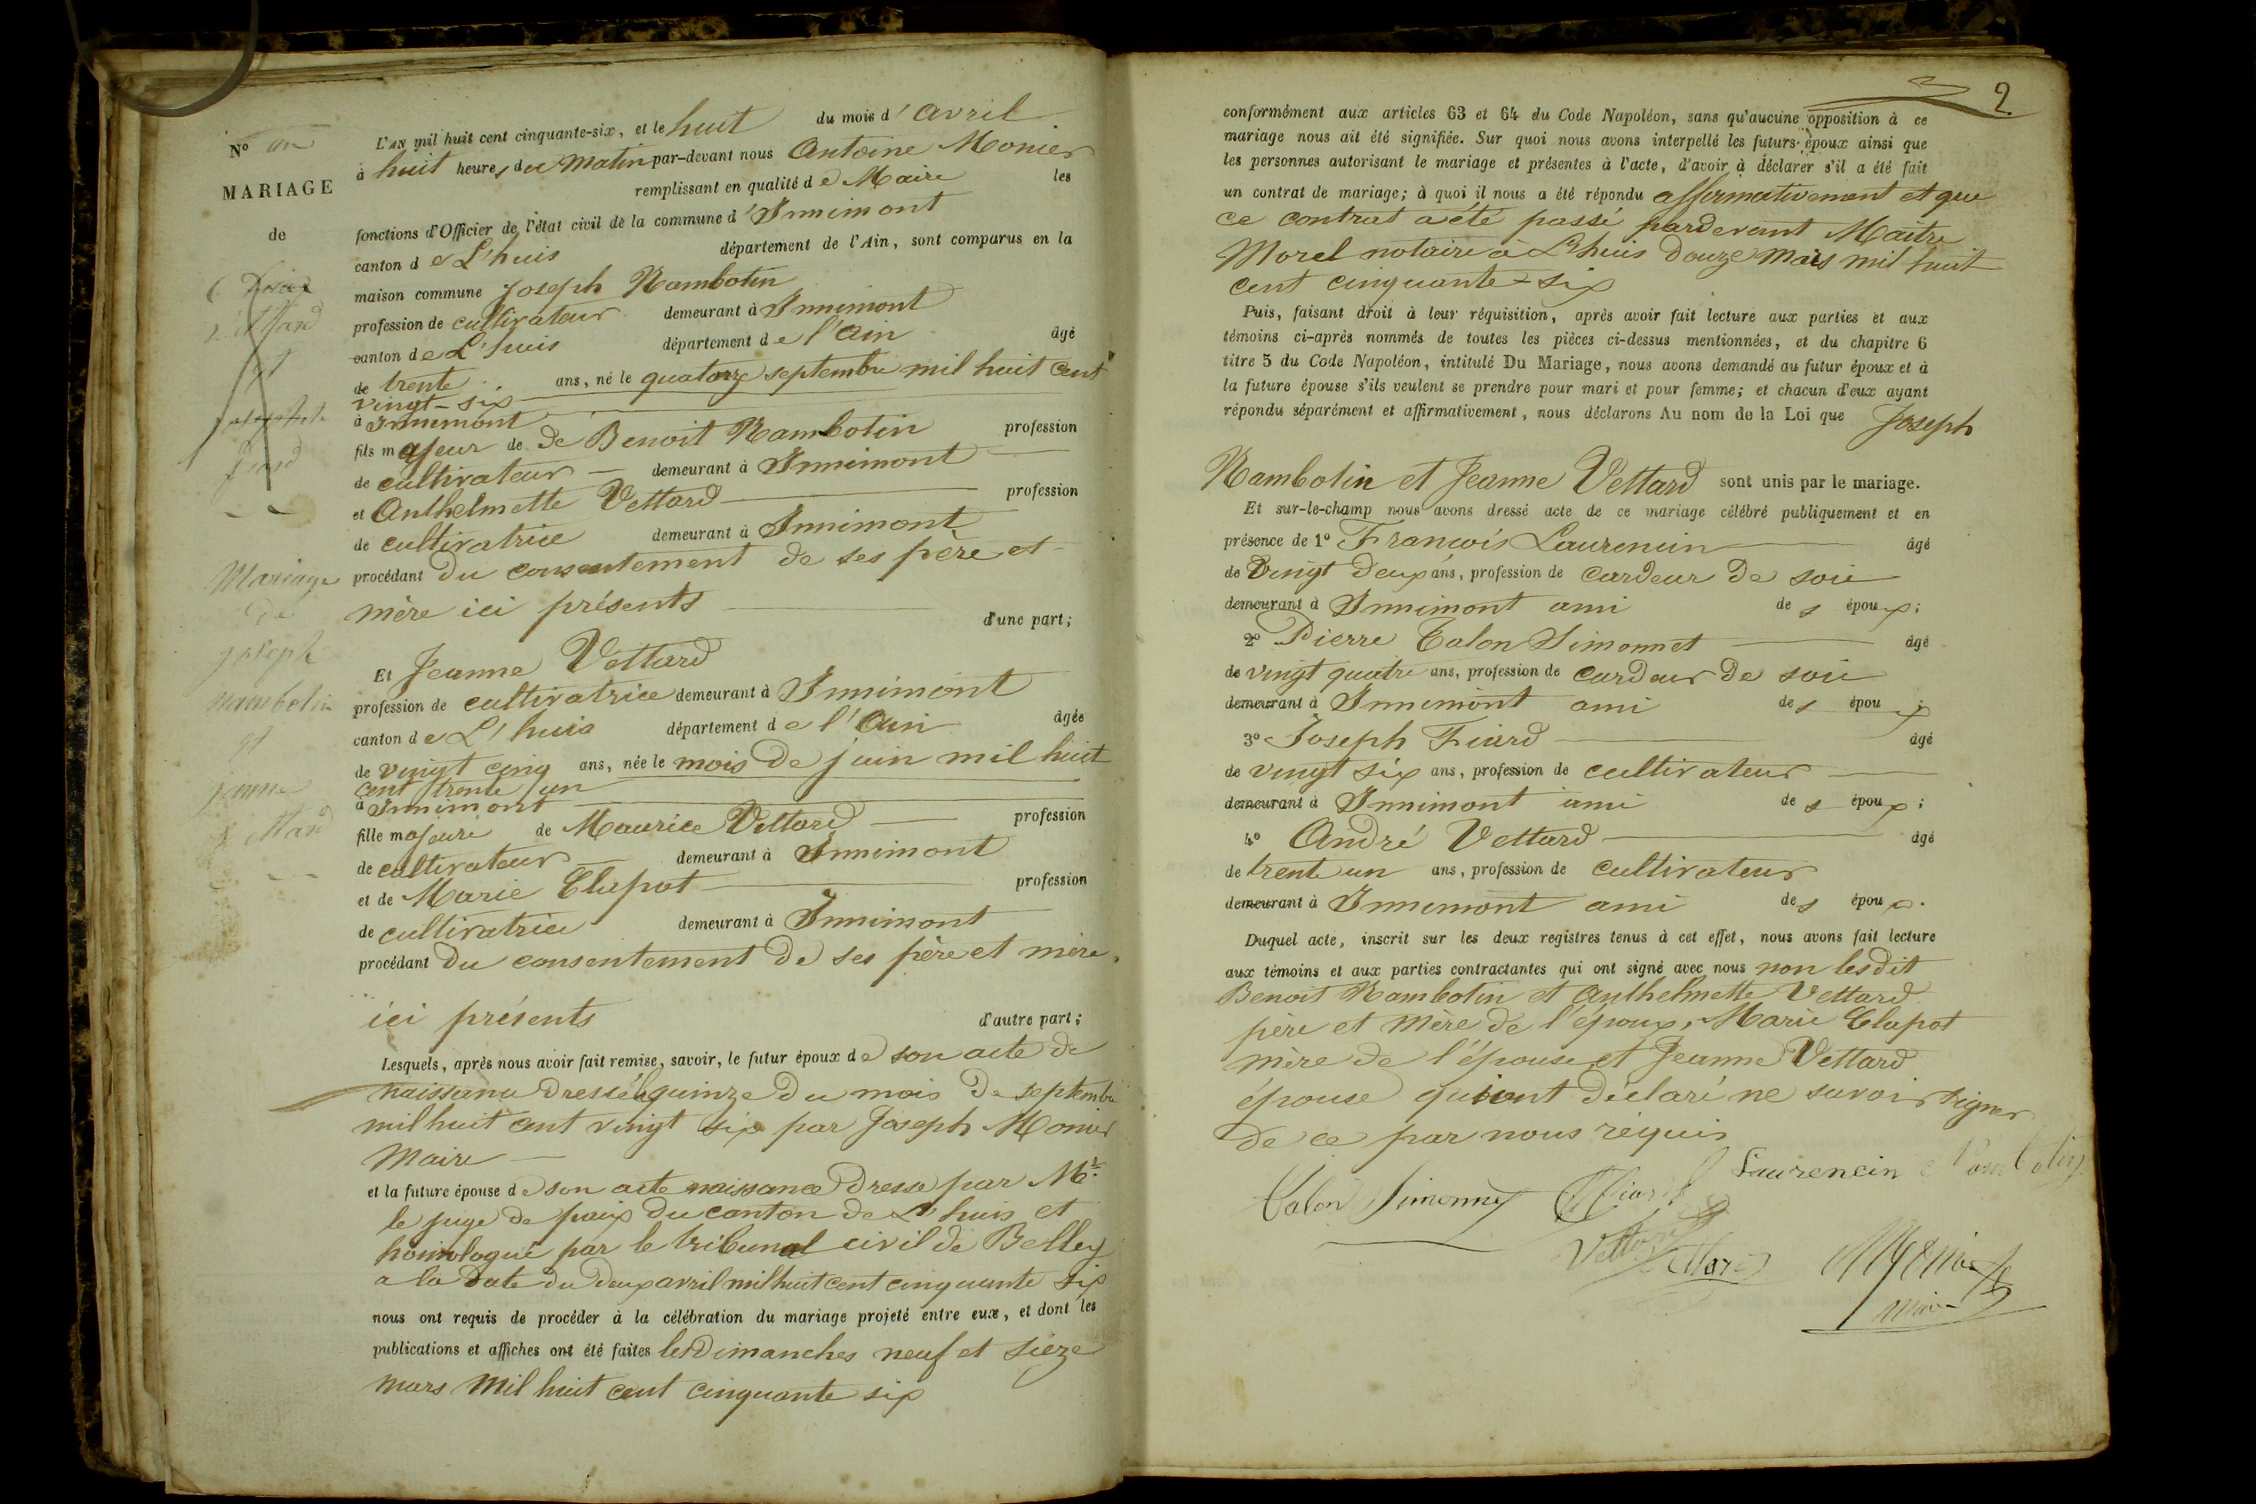 N° un
MARIAGE
de
Vettard
et
fiard
Mariage
de
joseph
rambotin
et
jeanne
Vettard
L'AN mil huit cent cinquante-six, et le huit du mois d'avril
à huit heures du matin par-devant nous Antoine Monier
remplissant en qualité de Maire les
fonctions d'Officier de l'état civil de la commune d'Innimont
canton de L'huis département de l'Ain, sont comparus en la
maison commune Joseph Rambotin
profession de cultivateur demeurant à Innimont
canton de L'huis département de l'Ain âgé
de trente ans, né le quatorze septembre mil huit cent
vingt-six
à Innimont
fils majeur de de Benoit Rambotin profession
de cultivateur demeurant à Innimont
et Anthelmette Vettard profession
de cultivatrice demeurant à Innimont
procédant du consentement de ses père et
mère ici présents d'une part;
Et Jeanne Vettard
profession de cultivatrice demeurant à Innimont
canton de L'huis département de l'Ain âgée
de vingt cinq ans, née le mois de juin mil huit
cent trente un
à Innimont
fille majeure de Maurice Vettard profession
de cultivateur demeurant à Innimont
et de Marie Clapot profession
de cultivatrice demeurant à Innimont
procédant du consentement de ses père et mère,
ici présents d'autre part;
Lesquels, après nous avoir fait remise, savoir, le futur époux de son acte de
naissance dressé le quinze du mois de septembre
mil huit cent vingt six par Joseph Monier
Maire
et la future épouse de son acte naissance dressé par Mr
le juge de paix du canton de L'huis et
homologué par le tribunal civil de Belley
a la date du deux avril mil huit cent cinquante six
nous ont requis de procéder à la célébration du mariage projeté entre eux, et dont les
publications et affiches ont été faites les Dimanches neuf et sieze
mars mil huit cent cinquante six
2
conformément aux articles 63 et 64 du Code Napoléon, sans qu'aucune opposition à ce
mariage nous ait été signifiée. Sur quoi nous avons interpellé les futurs époux ainsi que
les personnes autorisant le mariage et présentes à l'acte, d'avoir à déclarer s'il a été fait
un contrat de mariage; à quoi il nous a été répondu affirmativement et que
ce contrat a été passé pardevant Maitre
Morel notaire à L'huis douze mars mil huit
cent cinquante-six
Puis, faisant droit à leur réquisition, après avoir fait lecture aux parties et aux
témoins ci-après nommés de toutes les pièces ci-dessus mentionnées, et du chapitre 6
titre 5 du Code Napoléon, intitulé Du Mariage, nous avons demandé au futur époux et à
la future épouse s'ils veulent se prendre pour mari et pour femme; et chacun d'eux ayant
répondu séparément et affirmativement, nous déclarons Au nom de la Loi que Joseph
Rambotin et Jeanne Vettard sont unis par le mariage.
Et sur-le-champ nous avons dressé acte de ce mariage célébré publiquement et en
présence de 1° François Laurencin âgé
de vingt deux ans, profession de cardeur de soie
demeurant à Innimont ami des époux;
2° Pierre Calon Simonnet âgé
de vingt quatre ans, profession de cardeur de soie
demeurant à Innimont ami des époux;
3° Joseph Fiard âgé
de vingt six ans, profession de cultivateur
demeurant à Innimont ami des époux;
4° André Vettard âgé
de trente un ans, profession de cultivateur
demeurant à Innimont ami des époux.
Duquel acte, inscrit sur les deux registres tenus à cet effet, nous avons fait lecture
aux témoins et aux parties contractantes qui ont signé avec nous non lesdit
Benoit Rambotin et Anthelmette Vettard
père et mère de l'époux, Marie Clapot
mère de l'épouse et Jeanne Vettard
épouse qui ont déclaré ne savoir signer
de ce par nous requis
Laurencin Rambotin
Calon Simonnet Fiard
Vettard Vettard Monier
maire